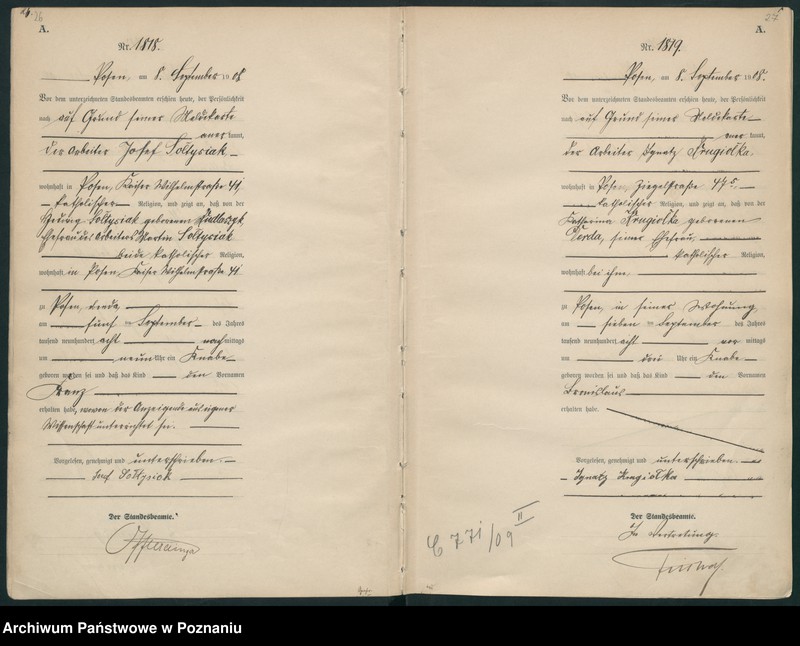 26
A.
Nr. 1818.
Posen, am 8. September 1908
Vor dem unterzeichneten Standesbeamten erschien heute, der Persönlichkeit
nach auf Grund seiner Meldekarte
aner kannt,
der Arbeiter Josef Soltysiak
wohnhaft in Posen, Kaiser Wilhelmstraße 41
katholischer Religion, und zeigt an, daß von der
Hedwig Soltysiak geborenen
Ehefrau des Arbeiters Martin Soltysiak
beide katholischer Religion,
wohnhaft in Posen, Kaiser Wilhelmstraße 41
zu Posen,
am fünf ten September des Jahres
tausend neunhundert acht nach mittags
um neun Uhr ein Knabe
geboren worden sei und daß das Kind den Vornamen
Franz
erhalten habe, wovon der Anzeigende aus eigener
Wissenschaft unterrichtet sei.
Vorgelesen, genehmigt und unterschrieben.
Josef Soltysiak
Der Standesbeamte.
27
A.
Nr. 1819.
Posen, am 8. September 1908.
Vor dem unterzeichneten Standesbeamten erschien heute, der Persönlichkeit
nach auf Grund seiner Meldekarte
aner kannt,
der Arbeiter Ignatz Krugiolka,
wohnhaft in Posen, Ziegelstraße
katholischer Religion, und zeigt an, daß von der
Katharina Krugiolka geborenen
seiner Ehefrau,
katholischer Religion,
wohnhaft bei ihm,
zu Posen, in seiner Wohnung
am sieben ten September des Jahres
tausend neunhundert acht vor mittags
um drei Uhr ein Knabe
geboren worden sei und daß das Kind den Vornamen
Bronislaus
erhalten habe.
Vorgelesen, genehmigt und unterschrieben.
Ignatz Krugiolka
Der Standesbeamte.
In Vertretung.
C 771/09 II
Archiwum Państwowe w Poznaniu